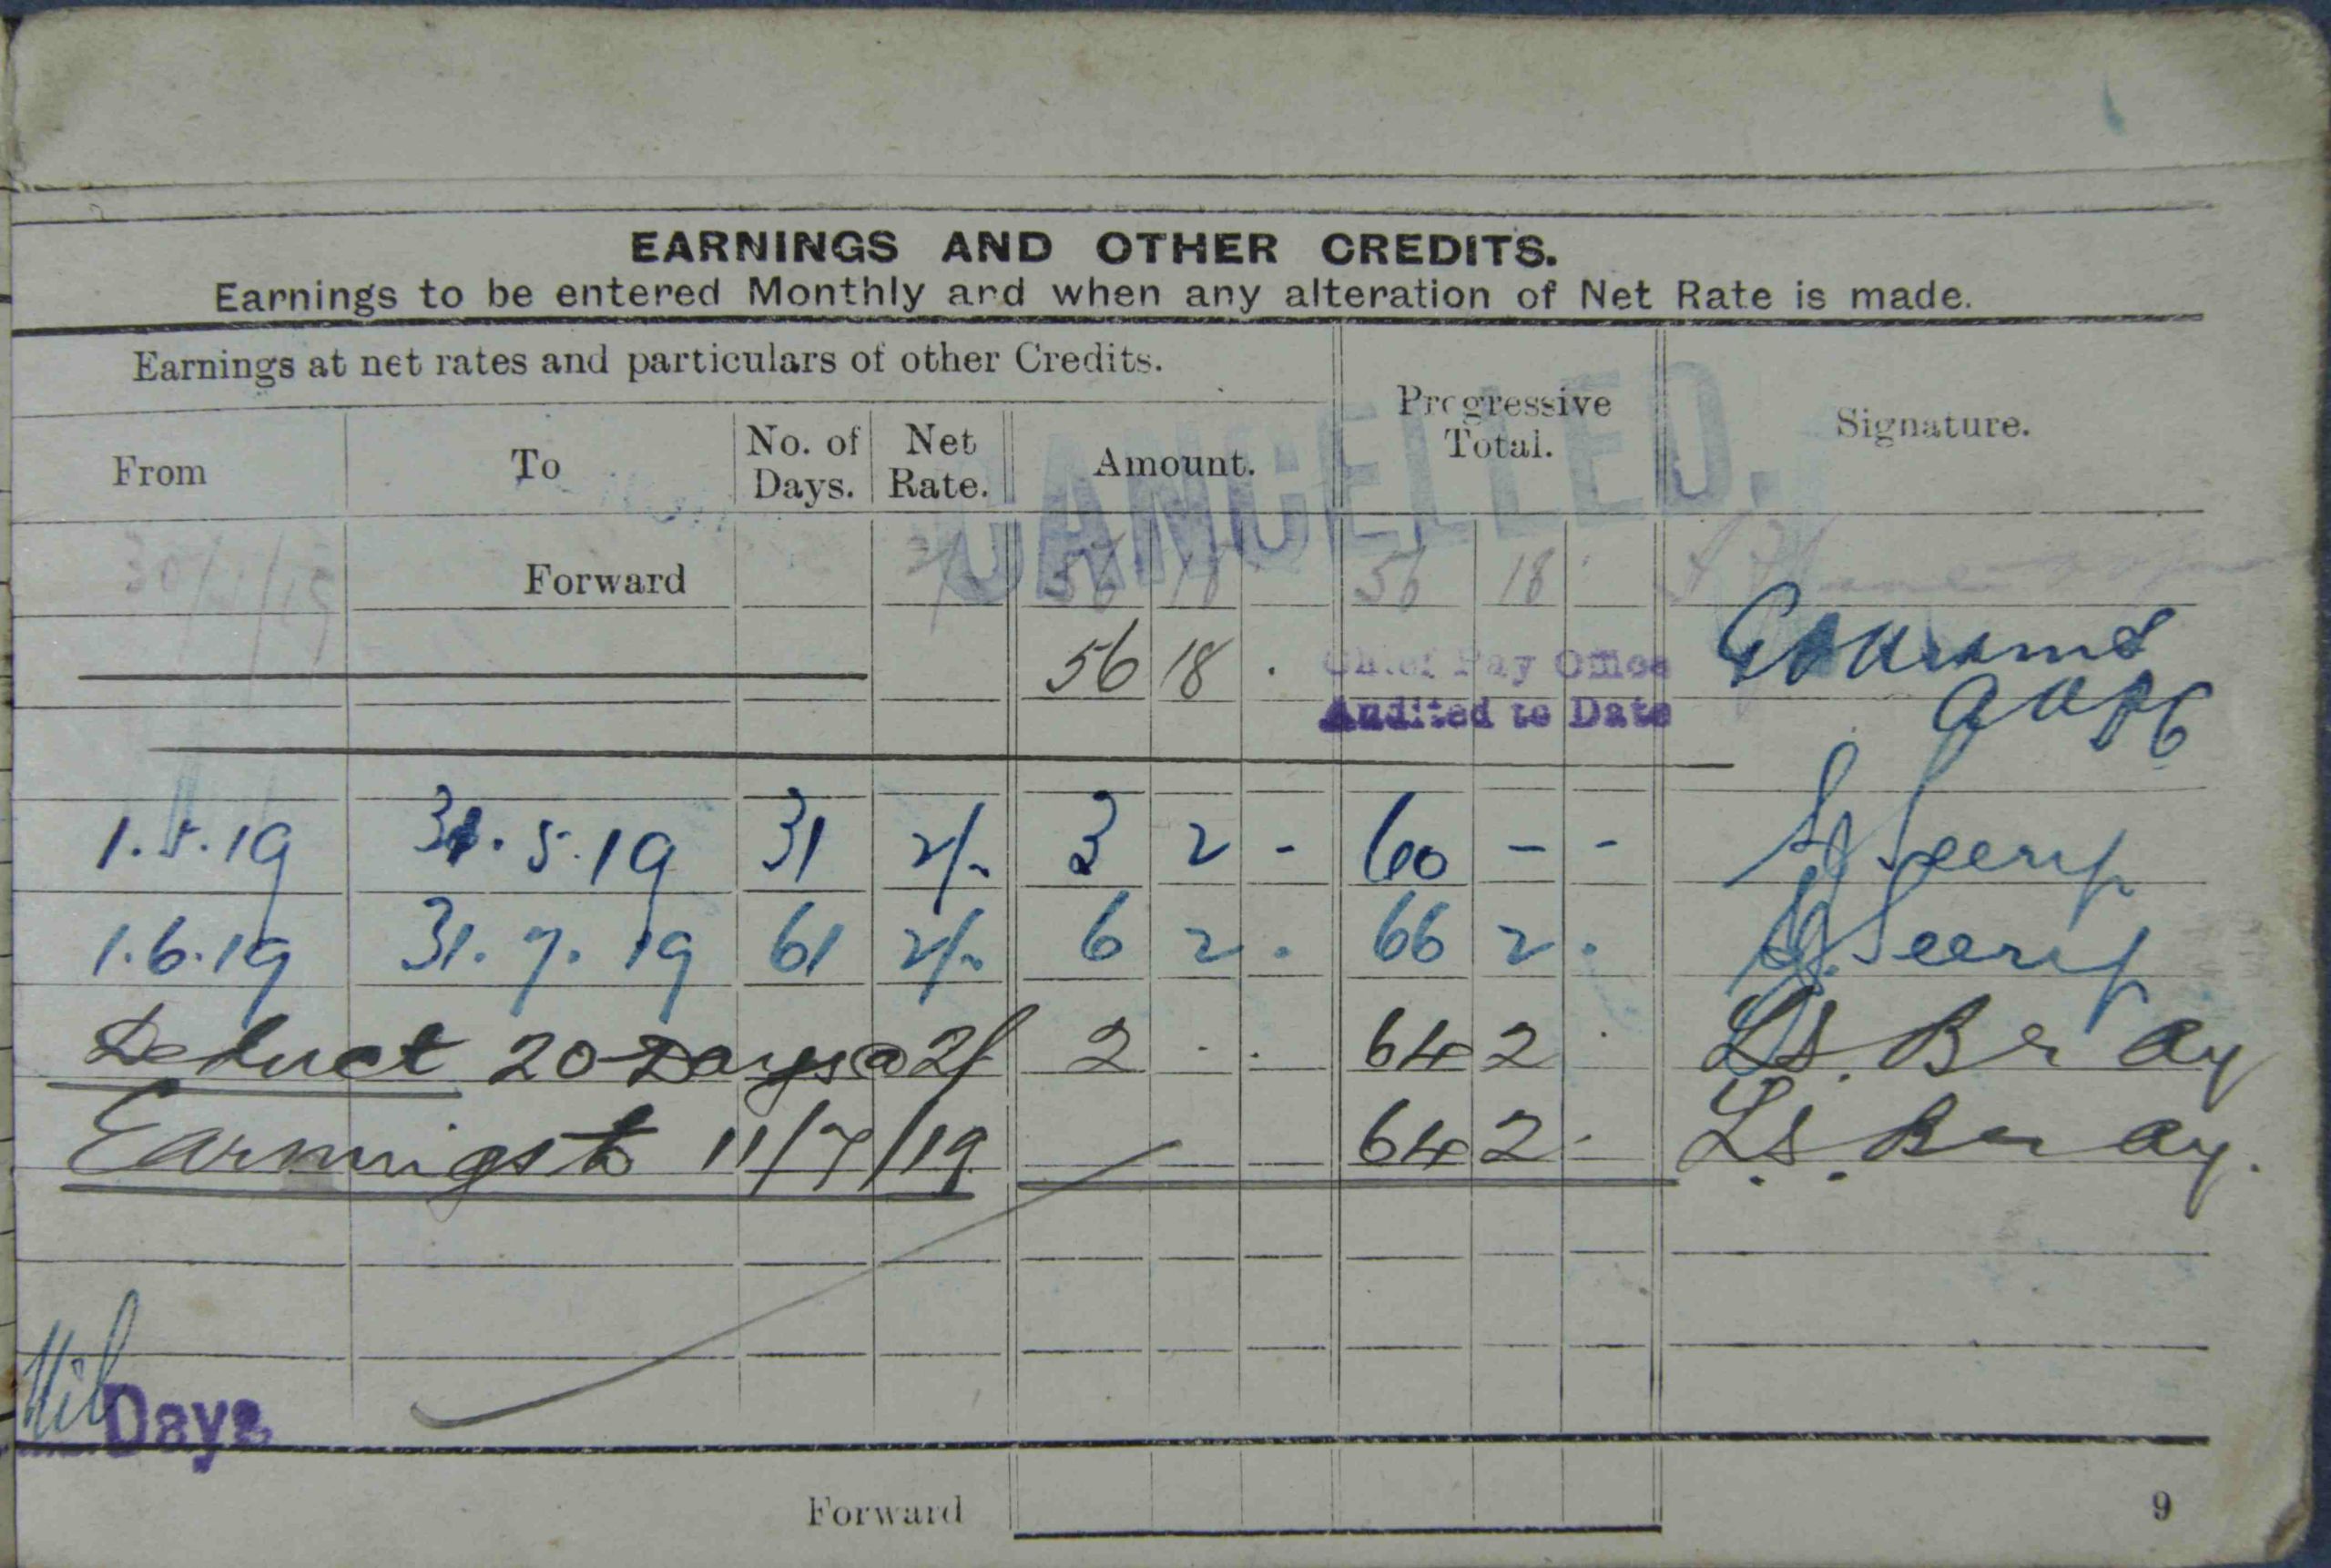 EARNINGS AND OTHER CREDITS.
Earnings to be entered Monthly and when any alteration of Net Rate is made.
Earnings at net rates and particulars of other Credits.
Progressive Total.
Signature.
From To No. of Days. Net Rate. Amount.
CANCELLED.
30/4/19 Forward 2/- 56 18 56 18
56 18 .
Chief Pay Office
Audited to Date
1.5.19 31.5.19 31 2/- 3 2 - 60 - -
1.6.19 31.7.19 61 2/- 6 2 . 66 2 .
Deduct 20 Days @ 2/ 2 . . 64 2 . L.S. Bray
Earnings to 11/7/19 64 2 - L.S. Bray.
Nil Days
Forward
9